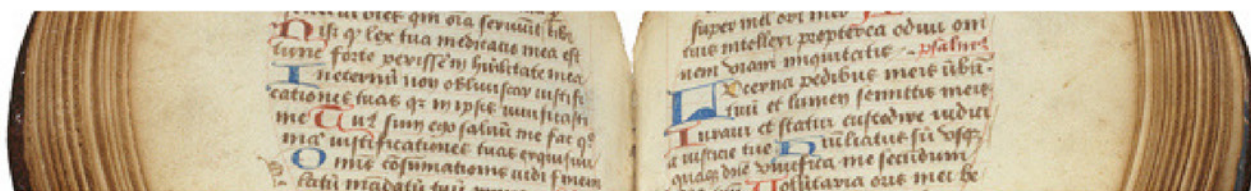 dies qm oia serviūt tibi
Nisi qͥ lex tua meditatio mea est
tunc forte perissēm hūilitate mea
In eternū non obliviscar iustifi
cationes tuas qꝛ in ipsis vivificasti
me Tuꝰ sum ego salvū me fac qͦ
iustificationes tuas exquisivi
Omīs cōsumationis vidi finem
latū mādatū tuū
super mel ori meo
tuis intellexi propterea odivi om
nem viam iniquitatis psalmꝰ
Lucerna pedibus meis ūbū
tuū et lumen semitis meis
Iuravi et statui custodire iudici
a iusticie tue Hūiliatus sū vsqꝫ
quaqꝫ dn̄e vivifica me secūdum
Volūtaria oris mei be